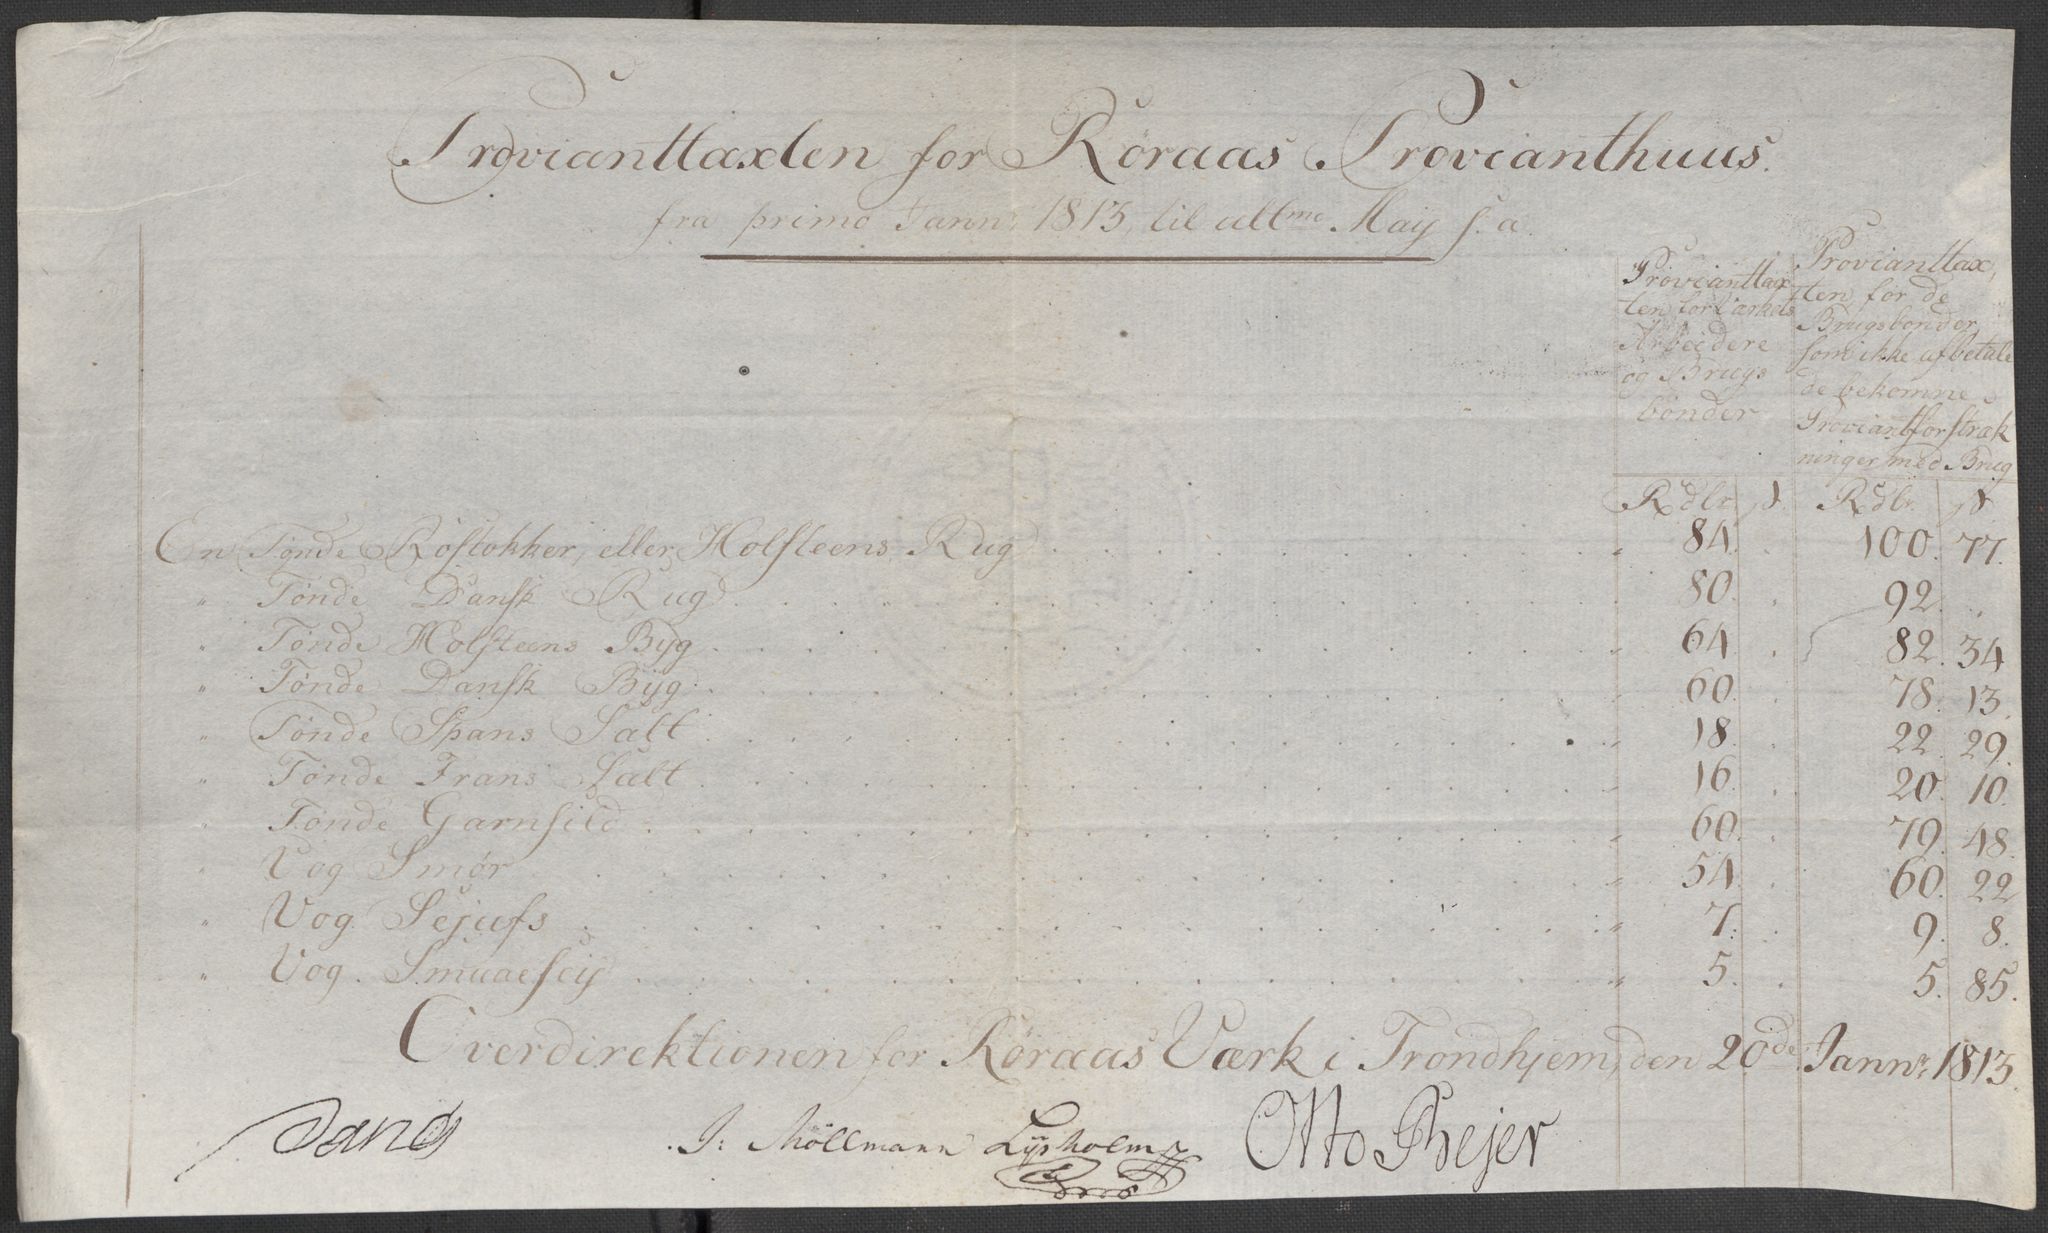 Provianttaxten for Röraas Provianthuus.
fra primo Jann: 1813, til ultme May s: a.
Provianttax
ten for Værkets
Arbeidere
og Brugs
bönder
Provianttax,
ten, for de
Brugsbönder
som ikke afbetale
de bekomne
Proviantforstræk
ninger med Brug
Rdlr. s. Rdlr. s
En Tønde Rostokker, eller Holsteens Rug . . . " 84. . 100. 77.
" Tønde Dansk Rug . . . " 80. . 92. .
" Tønde Holsteens Byg . . . " 64 . 82. 34
" Tønde Dansk Byg . . . " 60. . 78. 13.
" Tønde Spans Salt . . . " 18. . 22. 29.
" Tønde Frans Salt . . . " 16. . 20. 10.
" Tønde Garnsild . . . " 60. . 79. 48.
" Vog Smør . . . " 54. . 60. 22
" Vog Sejufs . . . " 7. . 9. 8.
" Vog. Smaaeseij . . . " 5. . 5. 85.
Overdirektionen for Røraas Værk i Trondhjem, den 20de Jann: 1813.
J: Möllmann Lysholm Otto Bejer